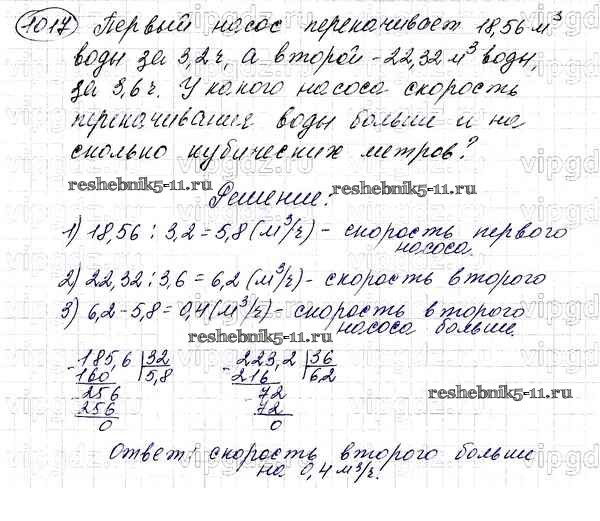 1017 Первый насос перекачивает 18,56 м³
воды за 3,2 ч, а второй - 22,32 м³ воды,
за 3,6 ч. У какого насоса скорость
перекачивания воды больше и на
сколько кубических метров?
reshebnik5-11.ru reshebnik5-11.ru
Решение:
1) 18,56 : 3,2 = 5,8 (м³/ч) - скорость первого
насоса.
2) 22,32 : 3,6 = 6,2 (м³/ч) - скорость второго
3) 6,2 - 5,8 = 0,4 (м³/ч) - скорость второго
насоса больше.
reshebnik5-11.ru
- 185,6 | 32 - 223,2 | 36
160 5,8 216 6,2
256 - 72
256 72
0 0
reshebnik5-11.ru
Ответ: скорость второго больше
на 0,4 м³/ч.